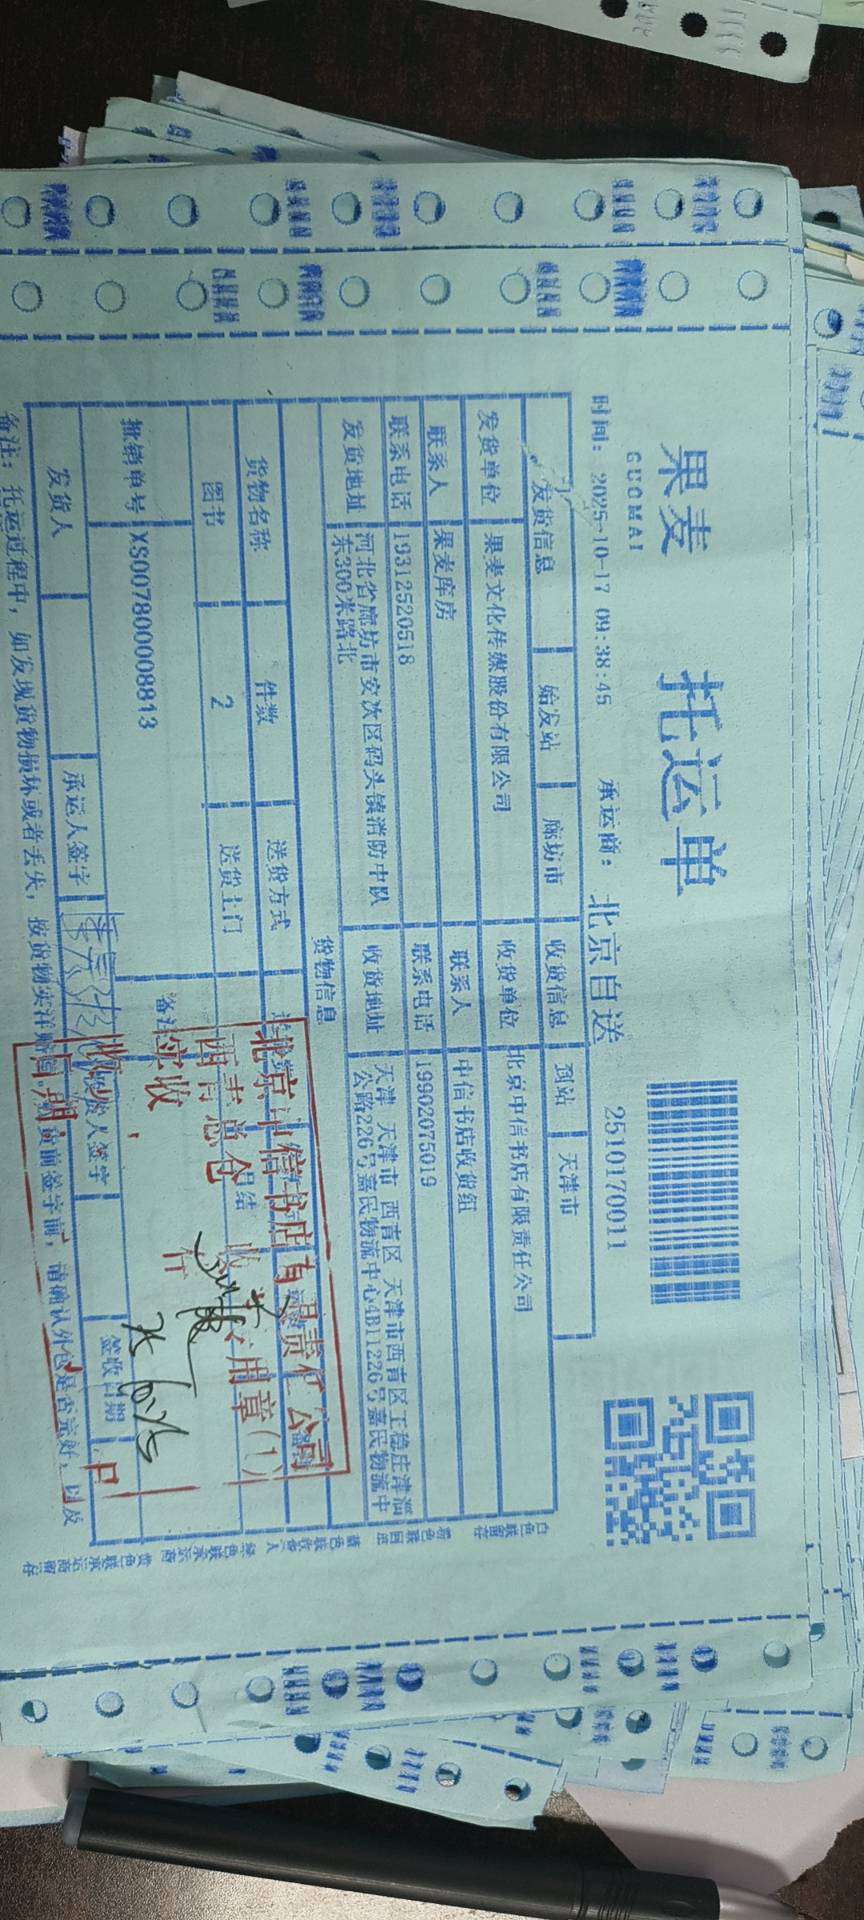 果麦
GUOMAI
托运单
2510170011
时间: 2025-10-17 09:38:45
承运商: 北京自送
发货信息 始发站 廊坊市 收货信息 到站 天津市
发货单位 果麦文化传媒股份有限公司 收货单位 北京中信书店有限责任公司
联系人 果麦库房 联系人 中信书店收货组
联系电话 19312520518 联系电话 19902075019
发货地址 河北省廊坊市安次区码头镇消防中队东300米路北 收货地址 天津 天津市 西青区 天津市西青区王稳庄津淄公路226号嘉民物流中心4B11226号嘉民物流中
货物信息
货物名称 件数 送货方式
图书 2 送货上门
批销单号 XS007800008813 备注
发货人 承运人签字 签字 签收日期
备注: 托运过程中, 如发现货物损坏或者丢失, 按货物实洋赔 前签字前, 请确认外包是否完好, 以及
北京中信书店有限责任公司
西青总仓 收 用章(1)
实收 件
日期
白色联留存